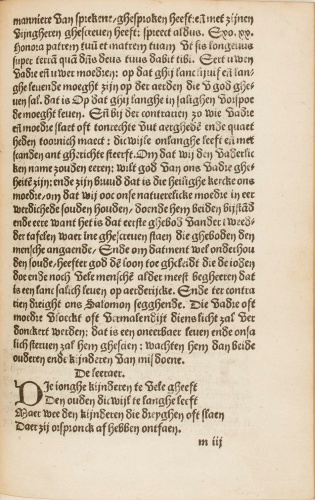 manniere van sprekene, ghesproken heeft: eñ met zijnen
vijngheren ghescreuen heeft: spreect aldus. Exo. xx.
Honora patrem tuū et matrem tuam vt sis longeuus
super terrā quā dñs deus tuus dabit tibi. Eert uwen
vadre eñ uwer moedre: op dat ghij lanclijuich eñ lan-
ghe leuende moeght zijn op der aerden die v god ghe-
uen sal. dat is Op dat ghij langhe in salighen voorspoe
de moeght leuen. Eñ bij der contrarien zo wie vadre
eñ moedre slaet oft tonrechte vut aerghede ende quaet
heden toornich maect: dicwijle onlanghe leeft eñ met
scanden ant ghericht steerft. Om dat wij den vaderlic
ken name zouden eeren: wilt god van ons vadre ghe-
heetē zijn: ende zijn bruud dat is die heilighe kercke ons
moedre, om dat wij ooc onse natuerelicke moedre in eer
weerdichede souden houden, doende hem beiden bijstād
ende eere want het is dat eerste ghebod vander tweed-
der tafelen waer ine ghescreuen staen die gheboden den
mensche angaende. Ende om datment wel onderhou
den soude, heefter god dē loon toe gheleidt die de ionghe
doe ende noch vele menschē alder meest begheeren dat
is een lanc salich leuen op aerderijcke. Ende ter contra
rien dreight ons Salomon segghende. Die vadre oft
moedre vloeckt oft vermalendijt diens licht zal ver
donckert werden: dat is een oneerbaer leuen ende onsa
lich steruen zal hem ghescien: wachten hem dan beide
ouderen ende kijnderen van misdoene.
De leeraer.
Die ionghe kijnderen te vele gheeft
Den ouden dicwijl te langhe leeft
Maer wee den kijnderen die dreyghen oft slaen
Daer zij orspronck af hebben ontfaen.
m iij